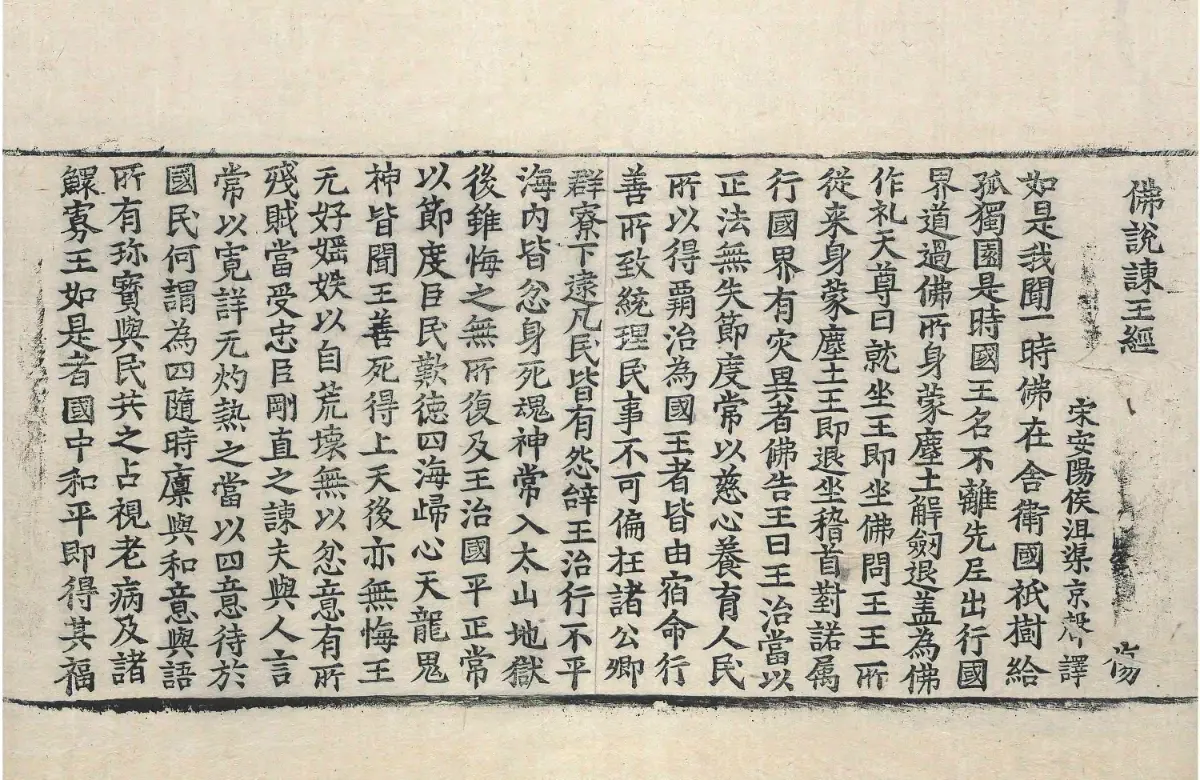 佛說諫王經 傷
宋安陽侯沮渠京聲譯
如是我聞一時佛在舍衛國祇樹給
孤獨園是時國王名不離先尼出行國
界道過佛所身蒙塵土解劒退盖為佛
作礼天尊曰就坐王即坐佛問王王所
從来身蒙塵土王即退坐稽首對諾屬
行國界有灾異者佛告王曰王治當以
正法無失節度常以慈心養育人民
所以得覇治為國王者皆由宿命行
善所致統理民事不可偏枉諸公卿
群寮下逮凡民皆有怨辝王治行不平
海内皆忿身死魂神常入太山地獄
後雖悔之無所復及王治國平正常
以節度臣民歎德四海歸心天龍鬼
神皆聞王善死得上天後亦無悔王
无好婬妷以自荒壊無以忿意有所
殘賊當受忠臣剛直之諫夫與人言
常以寬詳无灼熱之當以四意待於
國民何謂為四隨時廪與和意與語
所有珎寳與民共之占視老病及諸
鰥寡王如是者國中和平即得其福